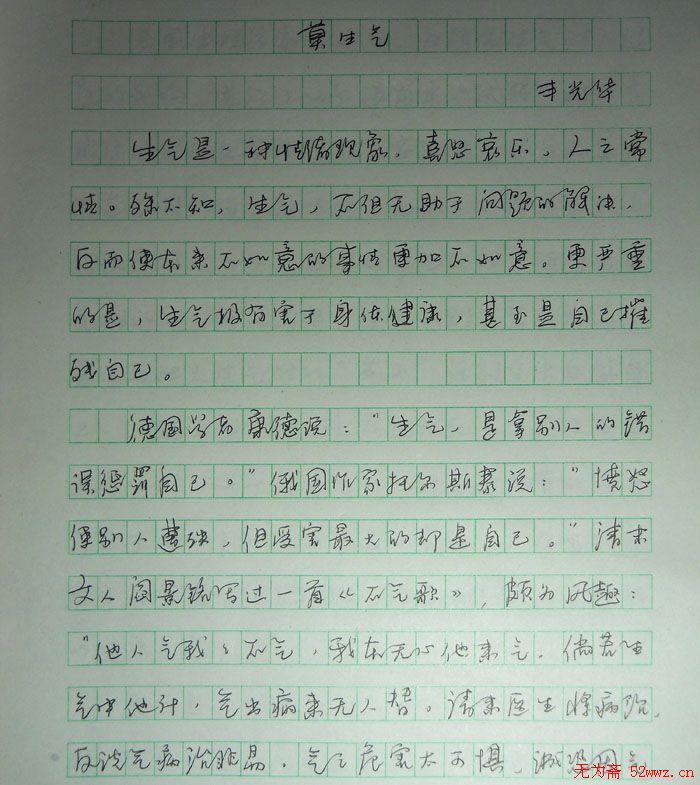 莫生气
丰光华
生气是一种情绪现象，喜怒哀乐，人之常
情。殊不知，生气，不但无助于问题的解决，
反而使本来不如意的事情更加不如意。更严重
的是，生气极有害于身体健康，甚至是自己摧
残自己。
德国学者康德说：“生气，是拿别人的错
误惩罚自己。”俄国作家托尔斯泰说：“愤怒
使别人遭殃，但受害最大的却是自己。”清末
文人阎景铭写过一首《不气歌》，颇为风趣：
“他人气我我不气，我本无心他来气。倘若生
气中他计，气出病来无人替。请来医生将病治，
反说气病治非易。气之危害太可惧，诚恐因气
无为斋 52wwz.cn